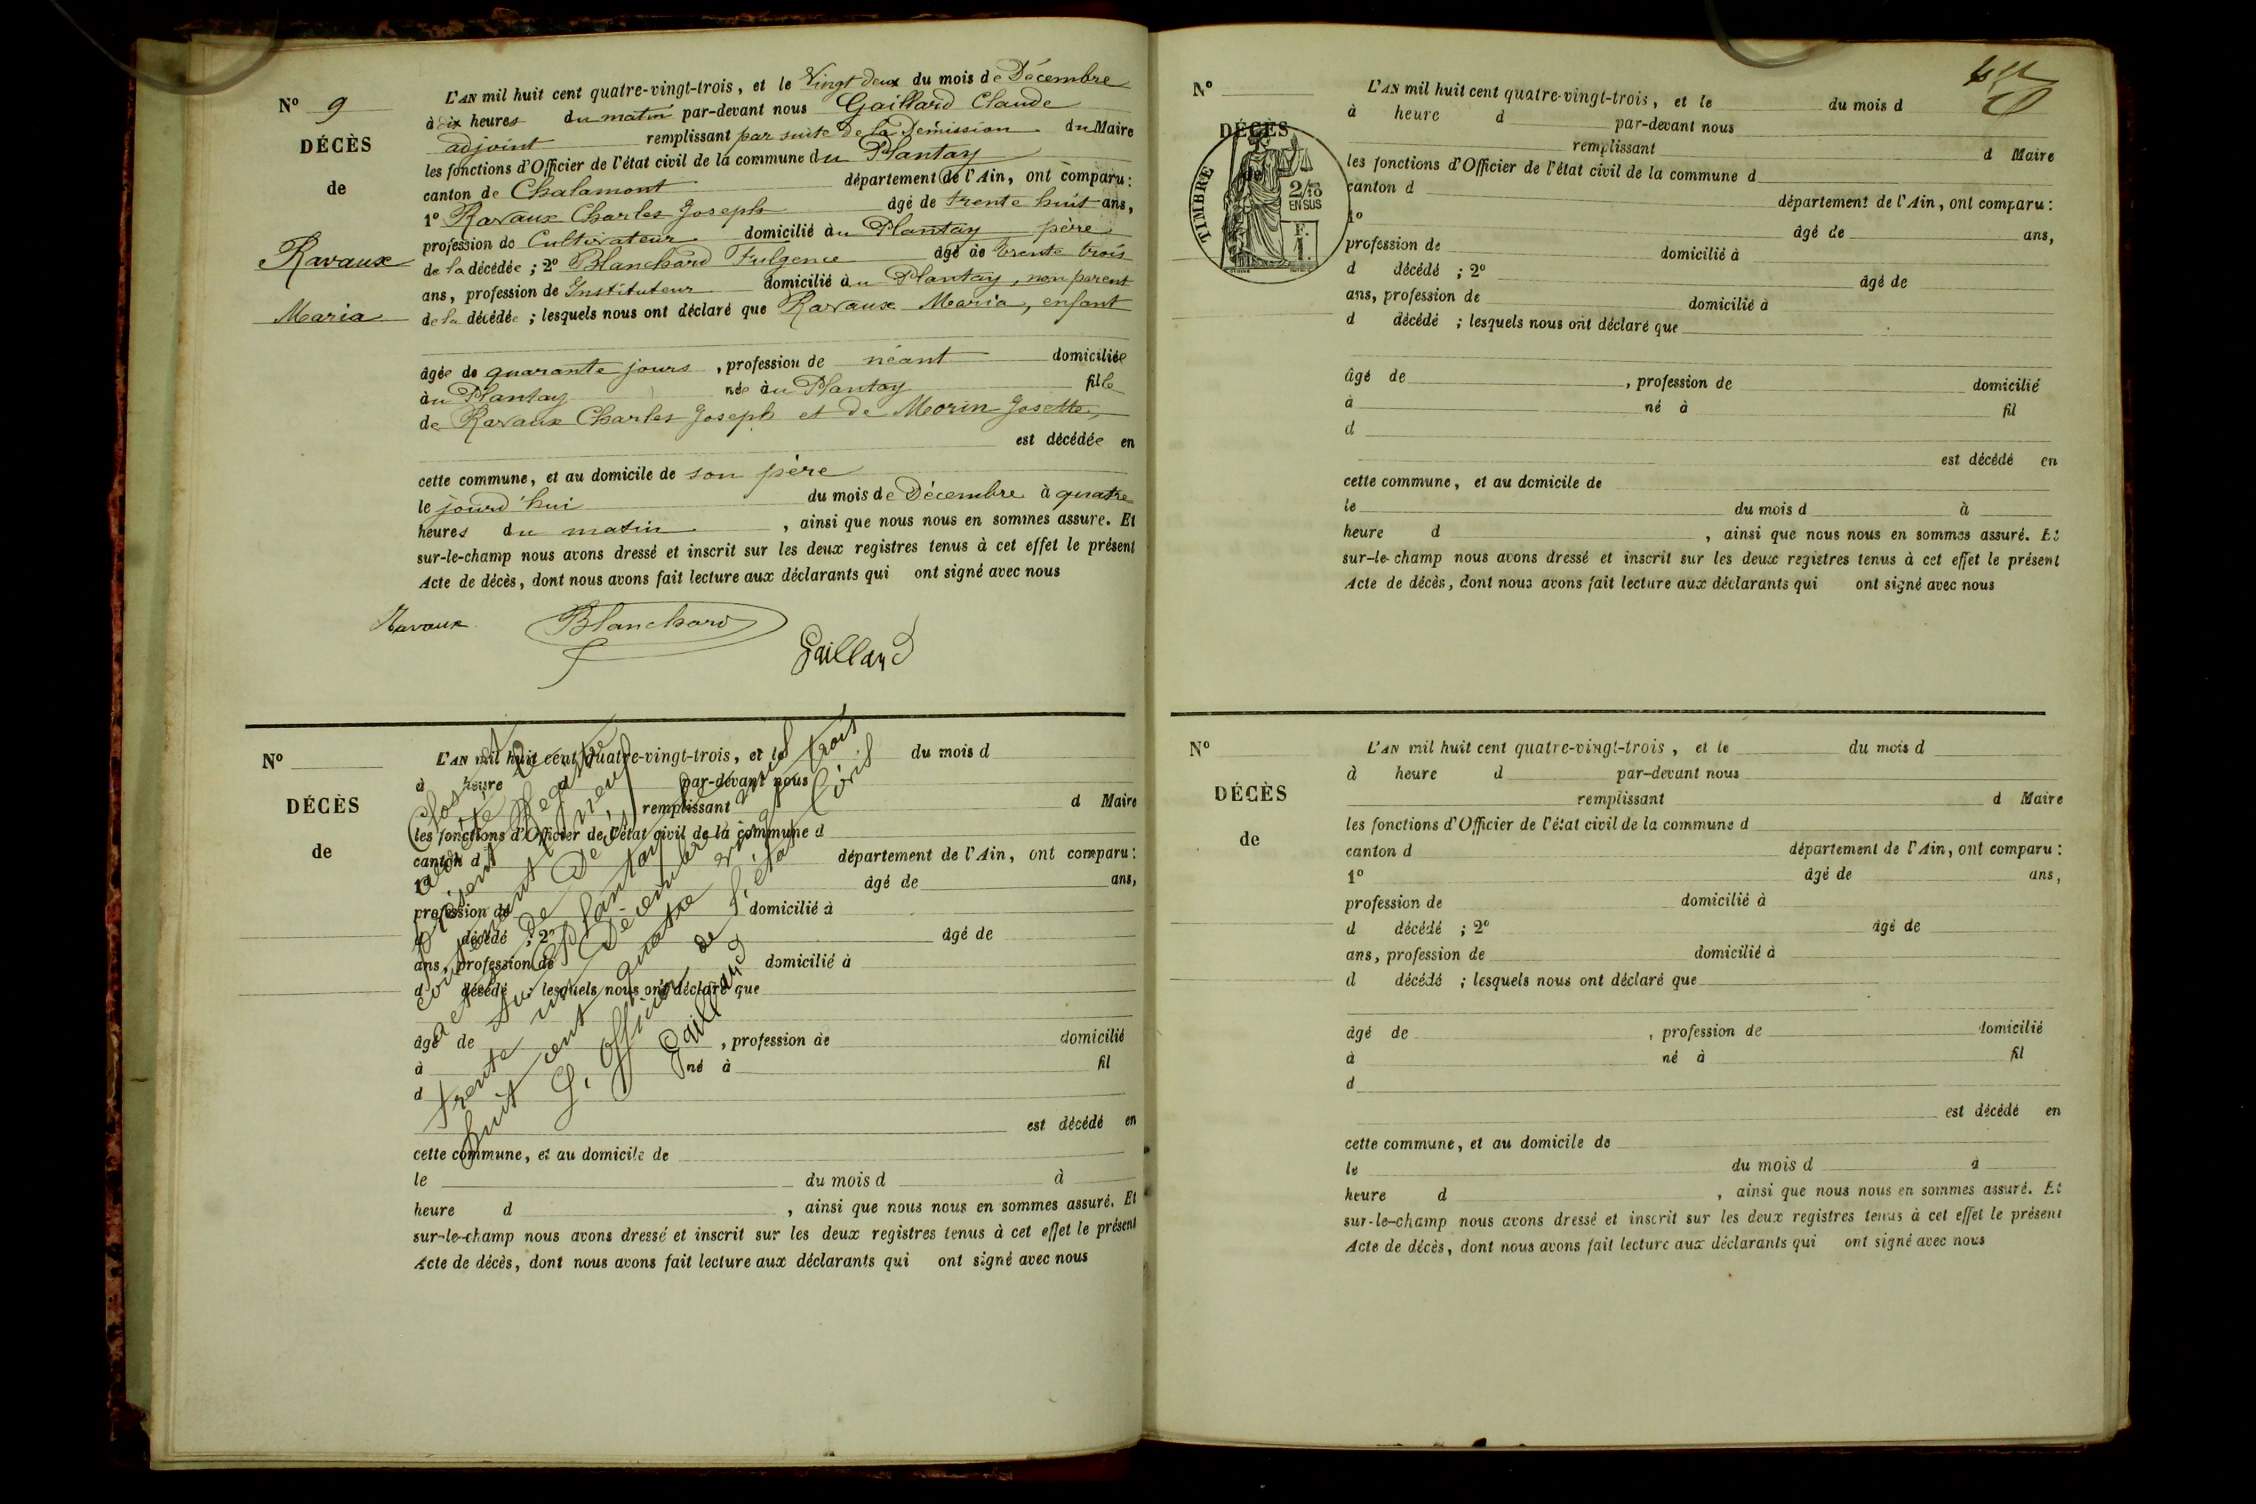 N° 9
DÉCÈS
de
Ravaux
Maria
L'AN mil huit cent quatre-vingt-trois, et le Vingt deux du mois de Décembre
à dix heures du matin par-devant nous Gaillard Claude
adjoint remplissant par suite de la Démission du Maire
les fonctions d'Officier de l'état civil de la commune du Plantay
canton de Chalamont département de l'Ain, ont comparu :
1° Ravaux Charles Joseph âgé de trente huit ans,
profession de Cultivateur domicilié au Plantay père
de la décédée ; 2° Blanchard Fulgence âgé de trente trois
ans, profession de Instituteur domicilié au Plantay, non parent
de la décédée ; lesquels nous ont déclaré que Ravaux Maria, enfant
âgée de quarante jours, profession de néant domiciliée
au Plantay née au Plantay fille
de Ravaux Charles Joseph et de Morin Josette,
est décédée en
cette commune, et au domicile de son père
le jourd'hui du mois de Décembre à quatre
heures du matin, ainsi que nous nous en sommes assuré. Et
sur-le-champ nous avons dressé et inscrit sur les deux registres tenus à cet effet le présent
Acte de décès, dont nous avons fait lecture aux déclarants qui ont signé avec nous
Ravaux Blanchard
Gaillard
N°
DÉCÈS
de
L'AN mil huit cent quatre-vingt-trois, et le du mois d
à heure d par-devant nous
remplissant d Maire
les fonctions d'Officier de l'état civil de la commune d
canton d département de l'Ain, ont comparu :
1° âgé de ans,
profession de domicilié à
d décédé ; 2° âgé de
ans, profession de domicilié à
d décédé ; lesquels nous ont déclaré que
âgé de , profession de domicilié
à né à fil
d
est décédé en
cette commune, et au domicile de
le du mois d à
heure d , ainsi que nous nous en sommes assuré. Et
sur-le-champ nous avons dressé et inscrit sur les deux registres tenus à cet effet le présent
Acte de décès, dont nous avons fait lecture aux déclarants qui ont signé avec nous
Clos et
présent Registre
contenant neuf
actes de Décès
au Plantay le
trente un Décembre mil
huit cent quatre vingt trois
L'Officier de l'état Civil
Gaillard
N°
DÉCÈS
TIMBRE
2/10
EN SUS
F.
1.
L'AN mil huit cent quatre-vingt-trois, et le du mois d
à heure d par-devant nous
remplissant d Maire
les fonctions d'Officier de l'état civil de la commune d
canton d département de l'Ain, ont comparu :
1° âgé de ans,
profession de domicilié à
d décédé ; 2° âgé de
ans, profession de domicilié à
d décédé ; lesquels nous ont déclaré que
âgé de , profession de domicilié
à né à fil
d
est décédé en
cette commune, et au domicile de
le du mois d à
heure d , ainsi que nous nous en sommes assuré. Et
sur-le-champ nous avons dressé et inscrit sur les deux registres tenus à cet effet le présent
Acte de décès, dont nous avons fait lecture aux déclarants qui ont signé avec nous
N°
DÉCÈS
de
L'AN mil huit cent quatre-vingt-trois, et le du mois d
à heure d par-devant nous
remplissant d Maire
les fonctions d'Officier de l'état civil de la commune d
canton d département de l'Ain, ont comparu :
1° âgé de ans,
profession de domicilié à
d décédé ; 2° âgé de
ans, profession de domicilié à
d décédé ; lesquels nous ont déclaré que
âgé de , profession de domicilié
à né à fil
d
est décédé en
cette commune, et au domicile de
le du mois d à
heure d , ainsi que nous nous en sommes assuré. Et
sur-le-champ nous avons dressé et inscrit sur les deux registres tenus à cet effet le présent
Acte de décès, dont nous avons fait lecture aux déclarants qui ont signé avec nous